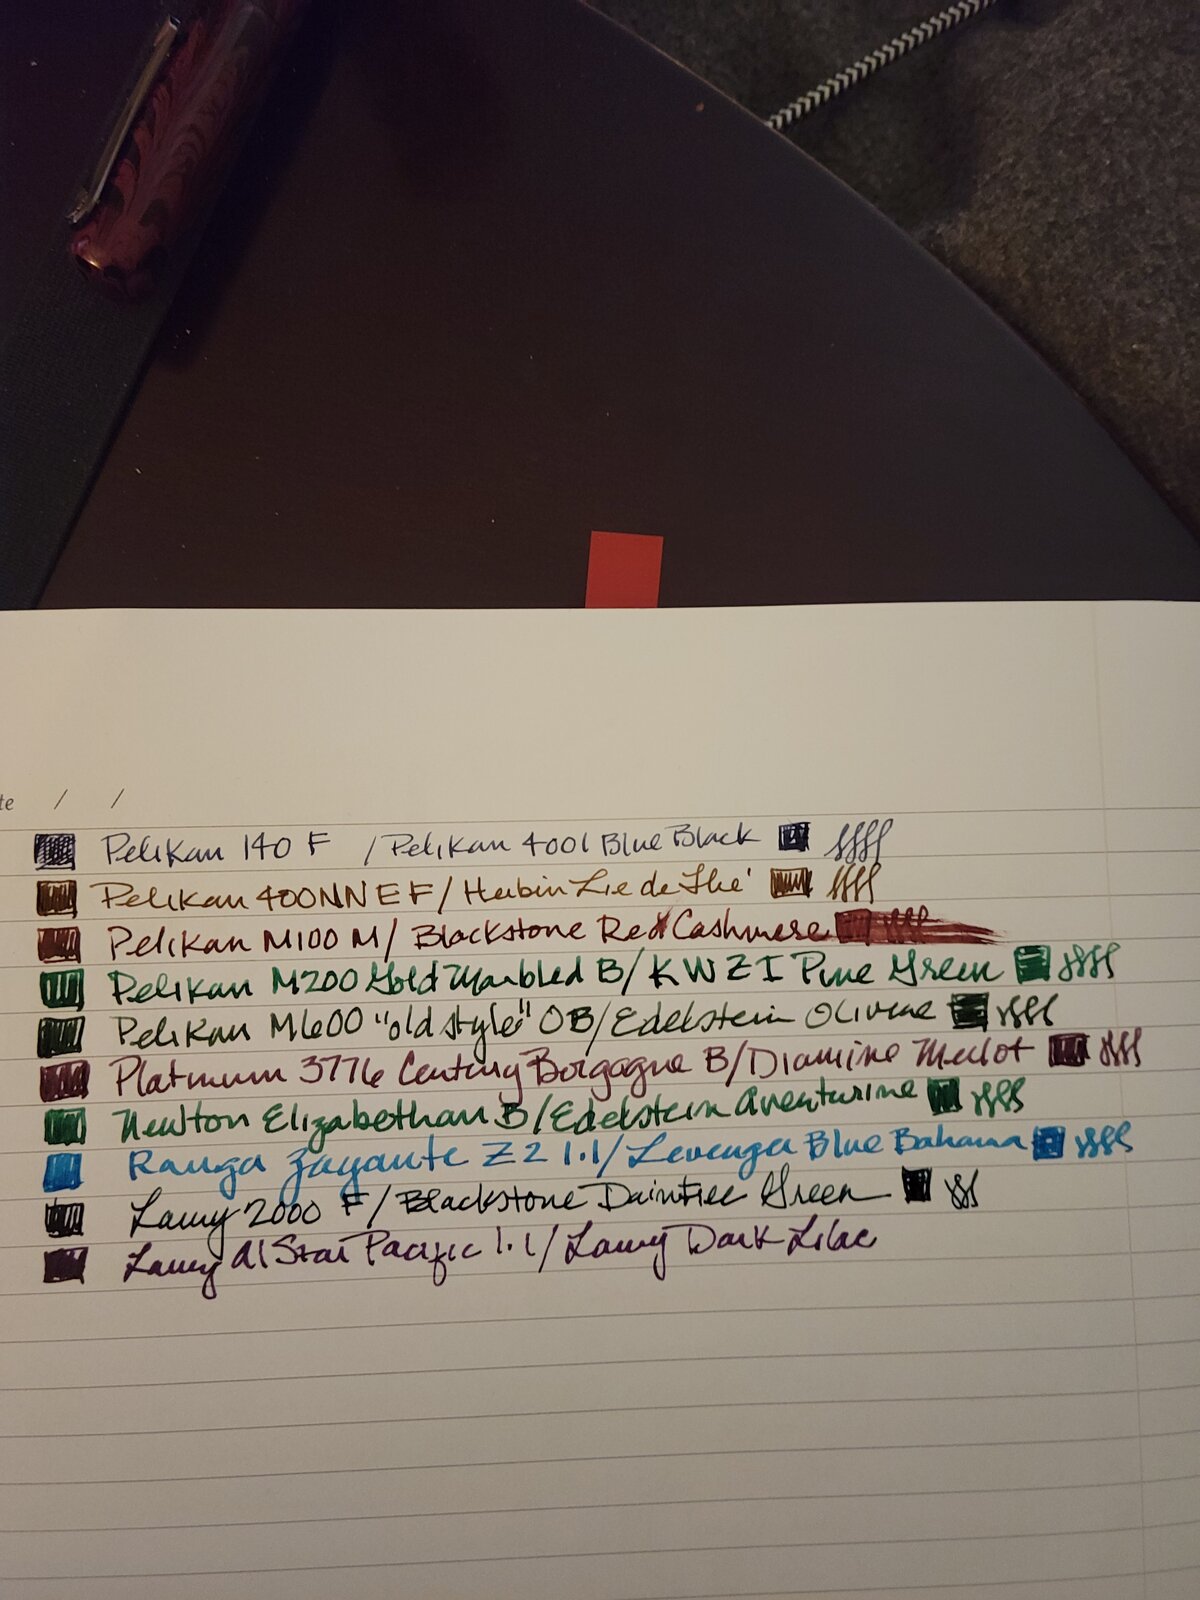 te / /
Pelikan 140 F / Pelikan 4001 Blue Black
Pelikan 400NN EF / Herbin Lie de Thé
Pelikan M100 M / Blackstone Red Cashmere
Pelikan M200 Gold Marbled B / KWZI Pine Green
Pelikan M600 "old style" OB / Edelstein Olivine
Platinum 3776 Century Borgogne B / Diamine Merlot
Newton Elizabethan B / Edelstein Aventurine
Ranga Zayante Z2 1.1 / Levenger Blue Bahama
Lamy 2000 F / Blackstone Daintree Green
Lamy Al Star Pacific 1.1 / Lamy Dark Lilac